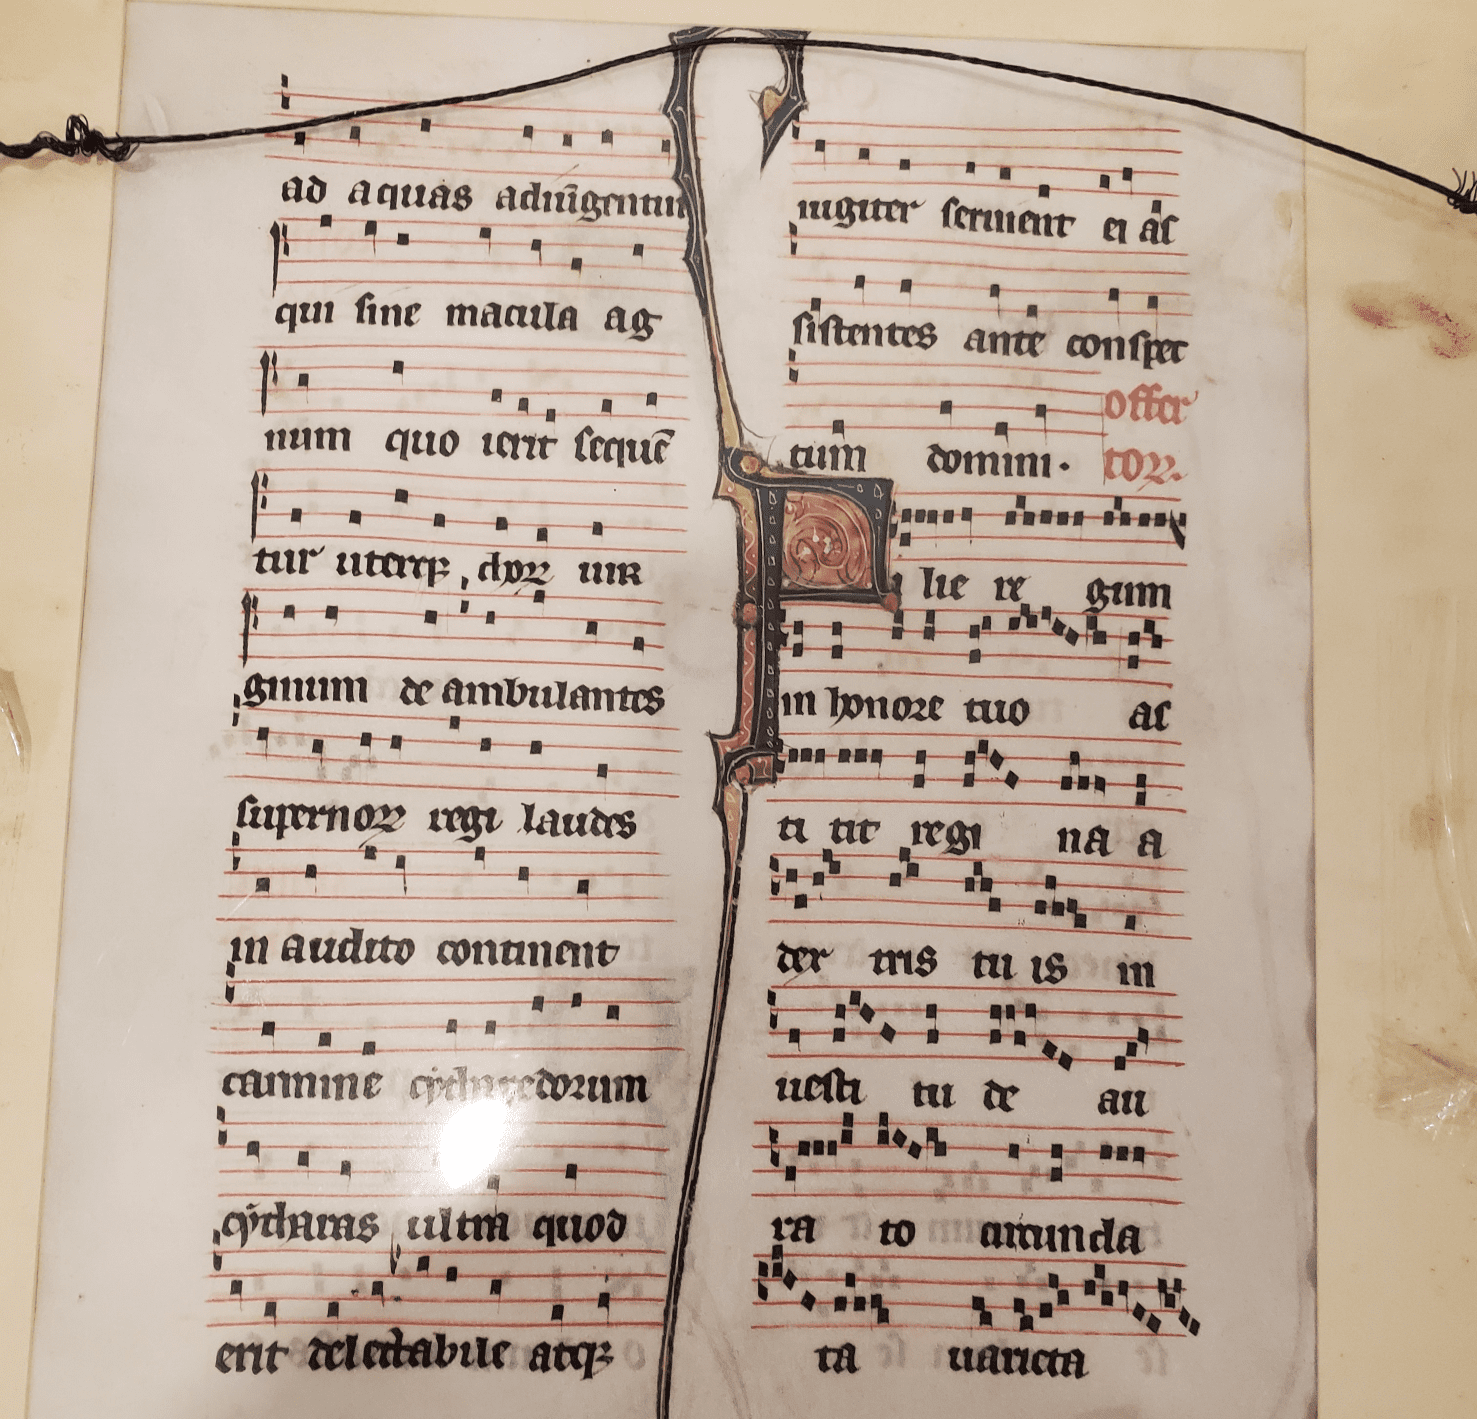 ad aquas adiūgentur
qui sine macula ag
num quo ierit sequē
tur uterq; choꝝ uir
ginum de ambulantes
supernoꝝ regi laudes
in audito continent
carmine cytharedorum
cytharas ultra quod
erit delectabile atq;
iugiter seruient ei as
sistentes ante conspec
tum domini. offer
toꝝ.
Filie regum
in honore tuo as
ti tit regi na a
dex tris tu is in
uesti tu de au
ra to circunda
ta uarieta